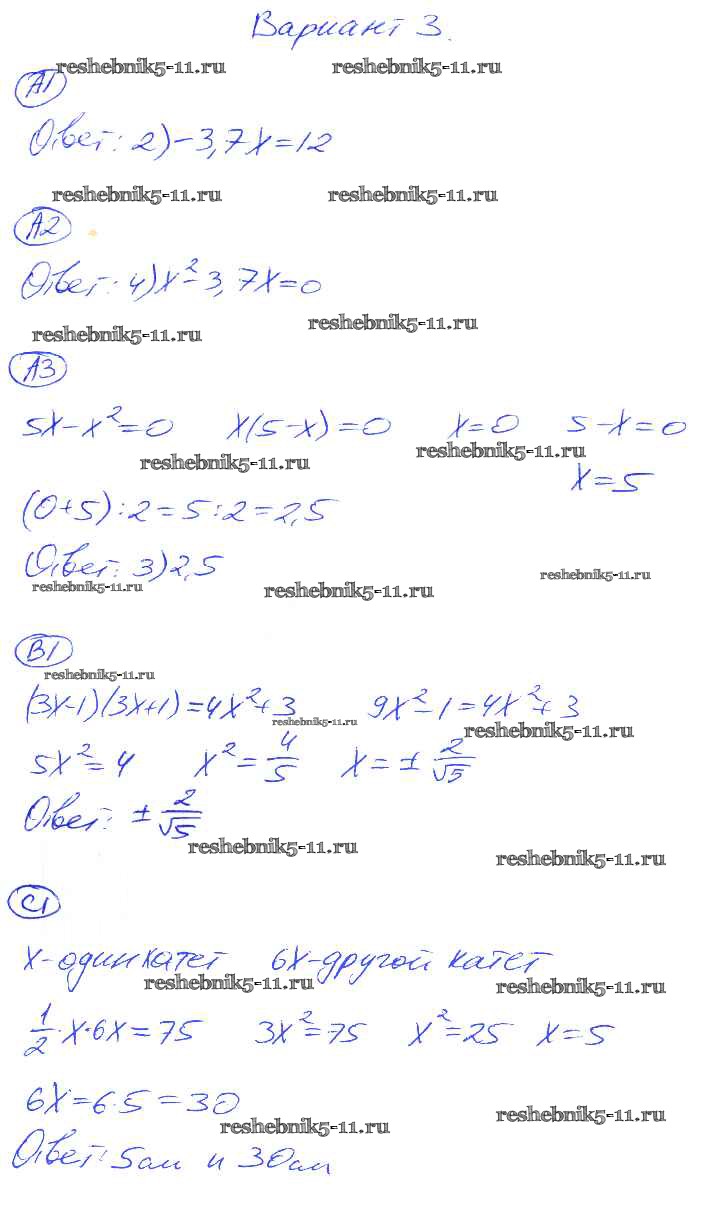 Вариант 3.
reshebnik5-11.ru reshebnik5-11.ru
А1
Ответ: 2) -3,7х=12
reshebnik5-11.ru reshebnik5-11.ru
А2
Ответ: 4) х²-3,7х=0
reshebnik5-11.ru reshebnik5-11.ru
А3
5х-х²=0 х(5-х)=0 х=0 5-х=0
reshebnik5-11.ru reshebnik5-11.ru
х=5
(0+5):2=5:2=2,5
Ответ: 3) 2,5
reshebnik5-11.ru reshebnik5-11.ru reshebnik5-11.ru
В1
reshebnik5-11.ru
(3х-1)(3х+1)=4х²+3 9х²-1=4х²+3
reshebnik5-11.ru reshebnik5-11.ru
5х²=4 х²=4/5 х=±2/√5
Ответ: ±2/√5
reshebnik5-11.ru reshebnik5-11.ru
С1
х-один катет 6х-другой катет
reshebnik5-11.ru reshebnik5-11.ru
1/2·х·6х=75 3х²=75 х²=25 х=5
6х=6·5=30
reshebnik5-11.ru reshebnik5-11.ru
Ответ: 5см и 30см